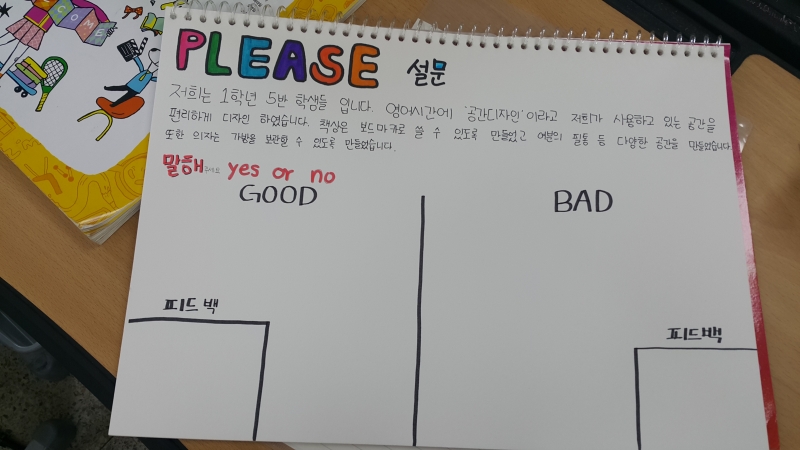 PLEASE 설문
저희는 1학년 5반 학생들 입니다. 영어시간에 '공간디자인'이라고 저희가 사용하고 있는 공간을
편리하게 디자인 하였습니다. 책상은 보드마카로 쓸 수 있도록 만들었고 여분의 필통 등 다양한 공간을 만들었습니다.
또한 의자는 가방을 보관할 수 있도록 만들었습니다.
말해주세요 yes or no
GOOD
BAD
피드백
피드백